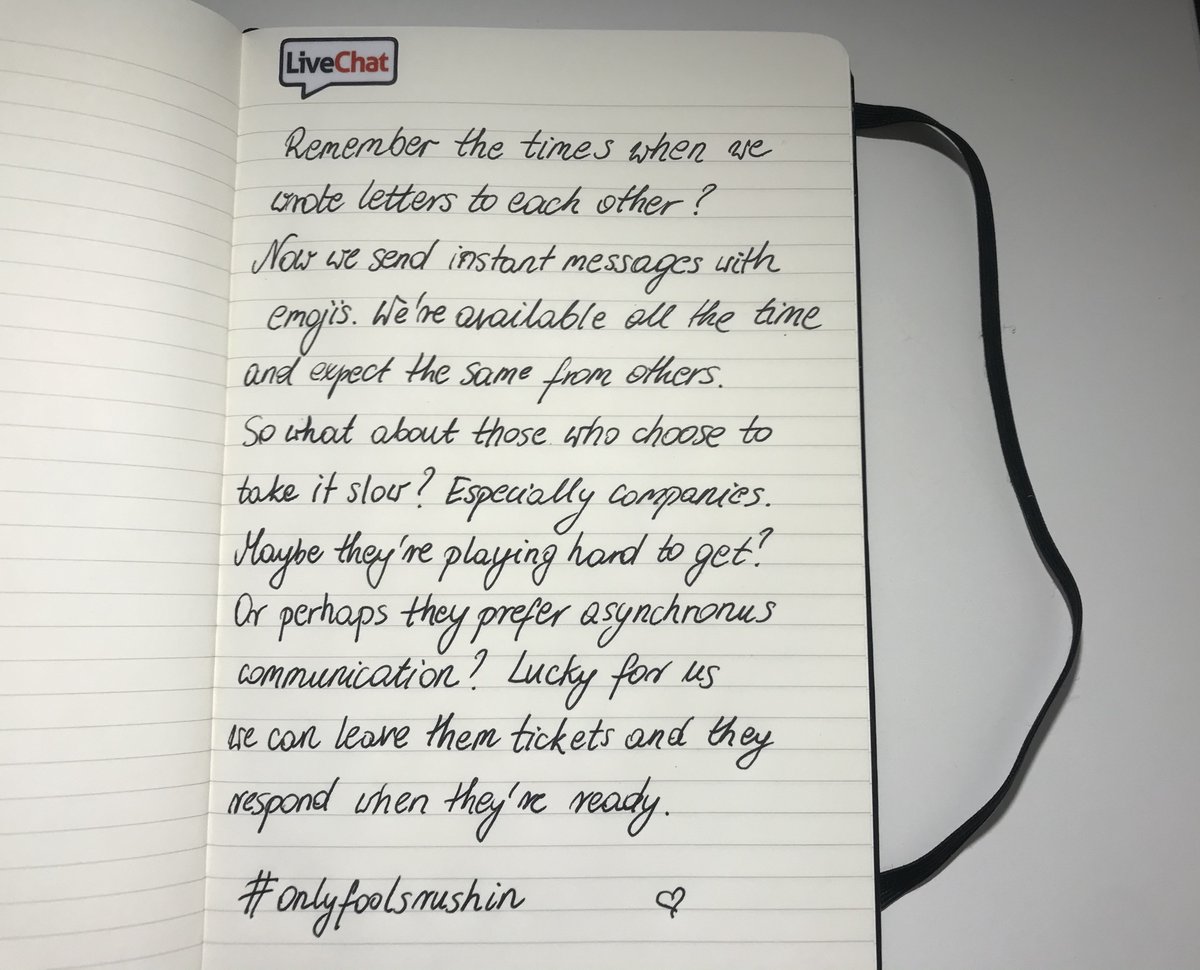 LiveChat
Remember the times when we
wrote letters to each other?
Now we send instant messages with
emojis. We're available all the time
and expect the same from others.
So what about those who choose to
take it slow? Especially companies.
Maybe they're playing hard to get?
Or perhaps they prefer asynchronus
communication? Lucky for us
we can leave them tickets and they
respond when they're ready.
#onlyfoolsrushin ♡